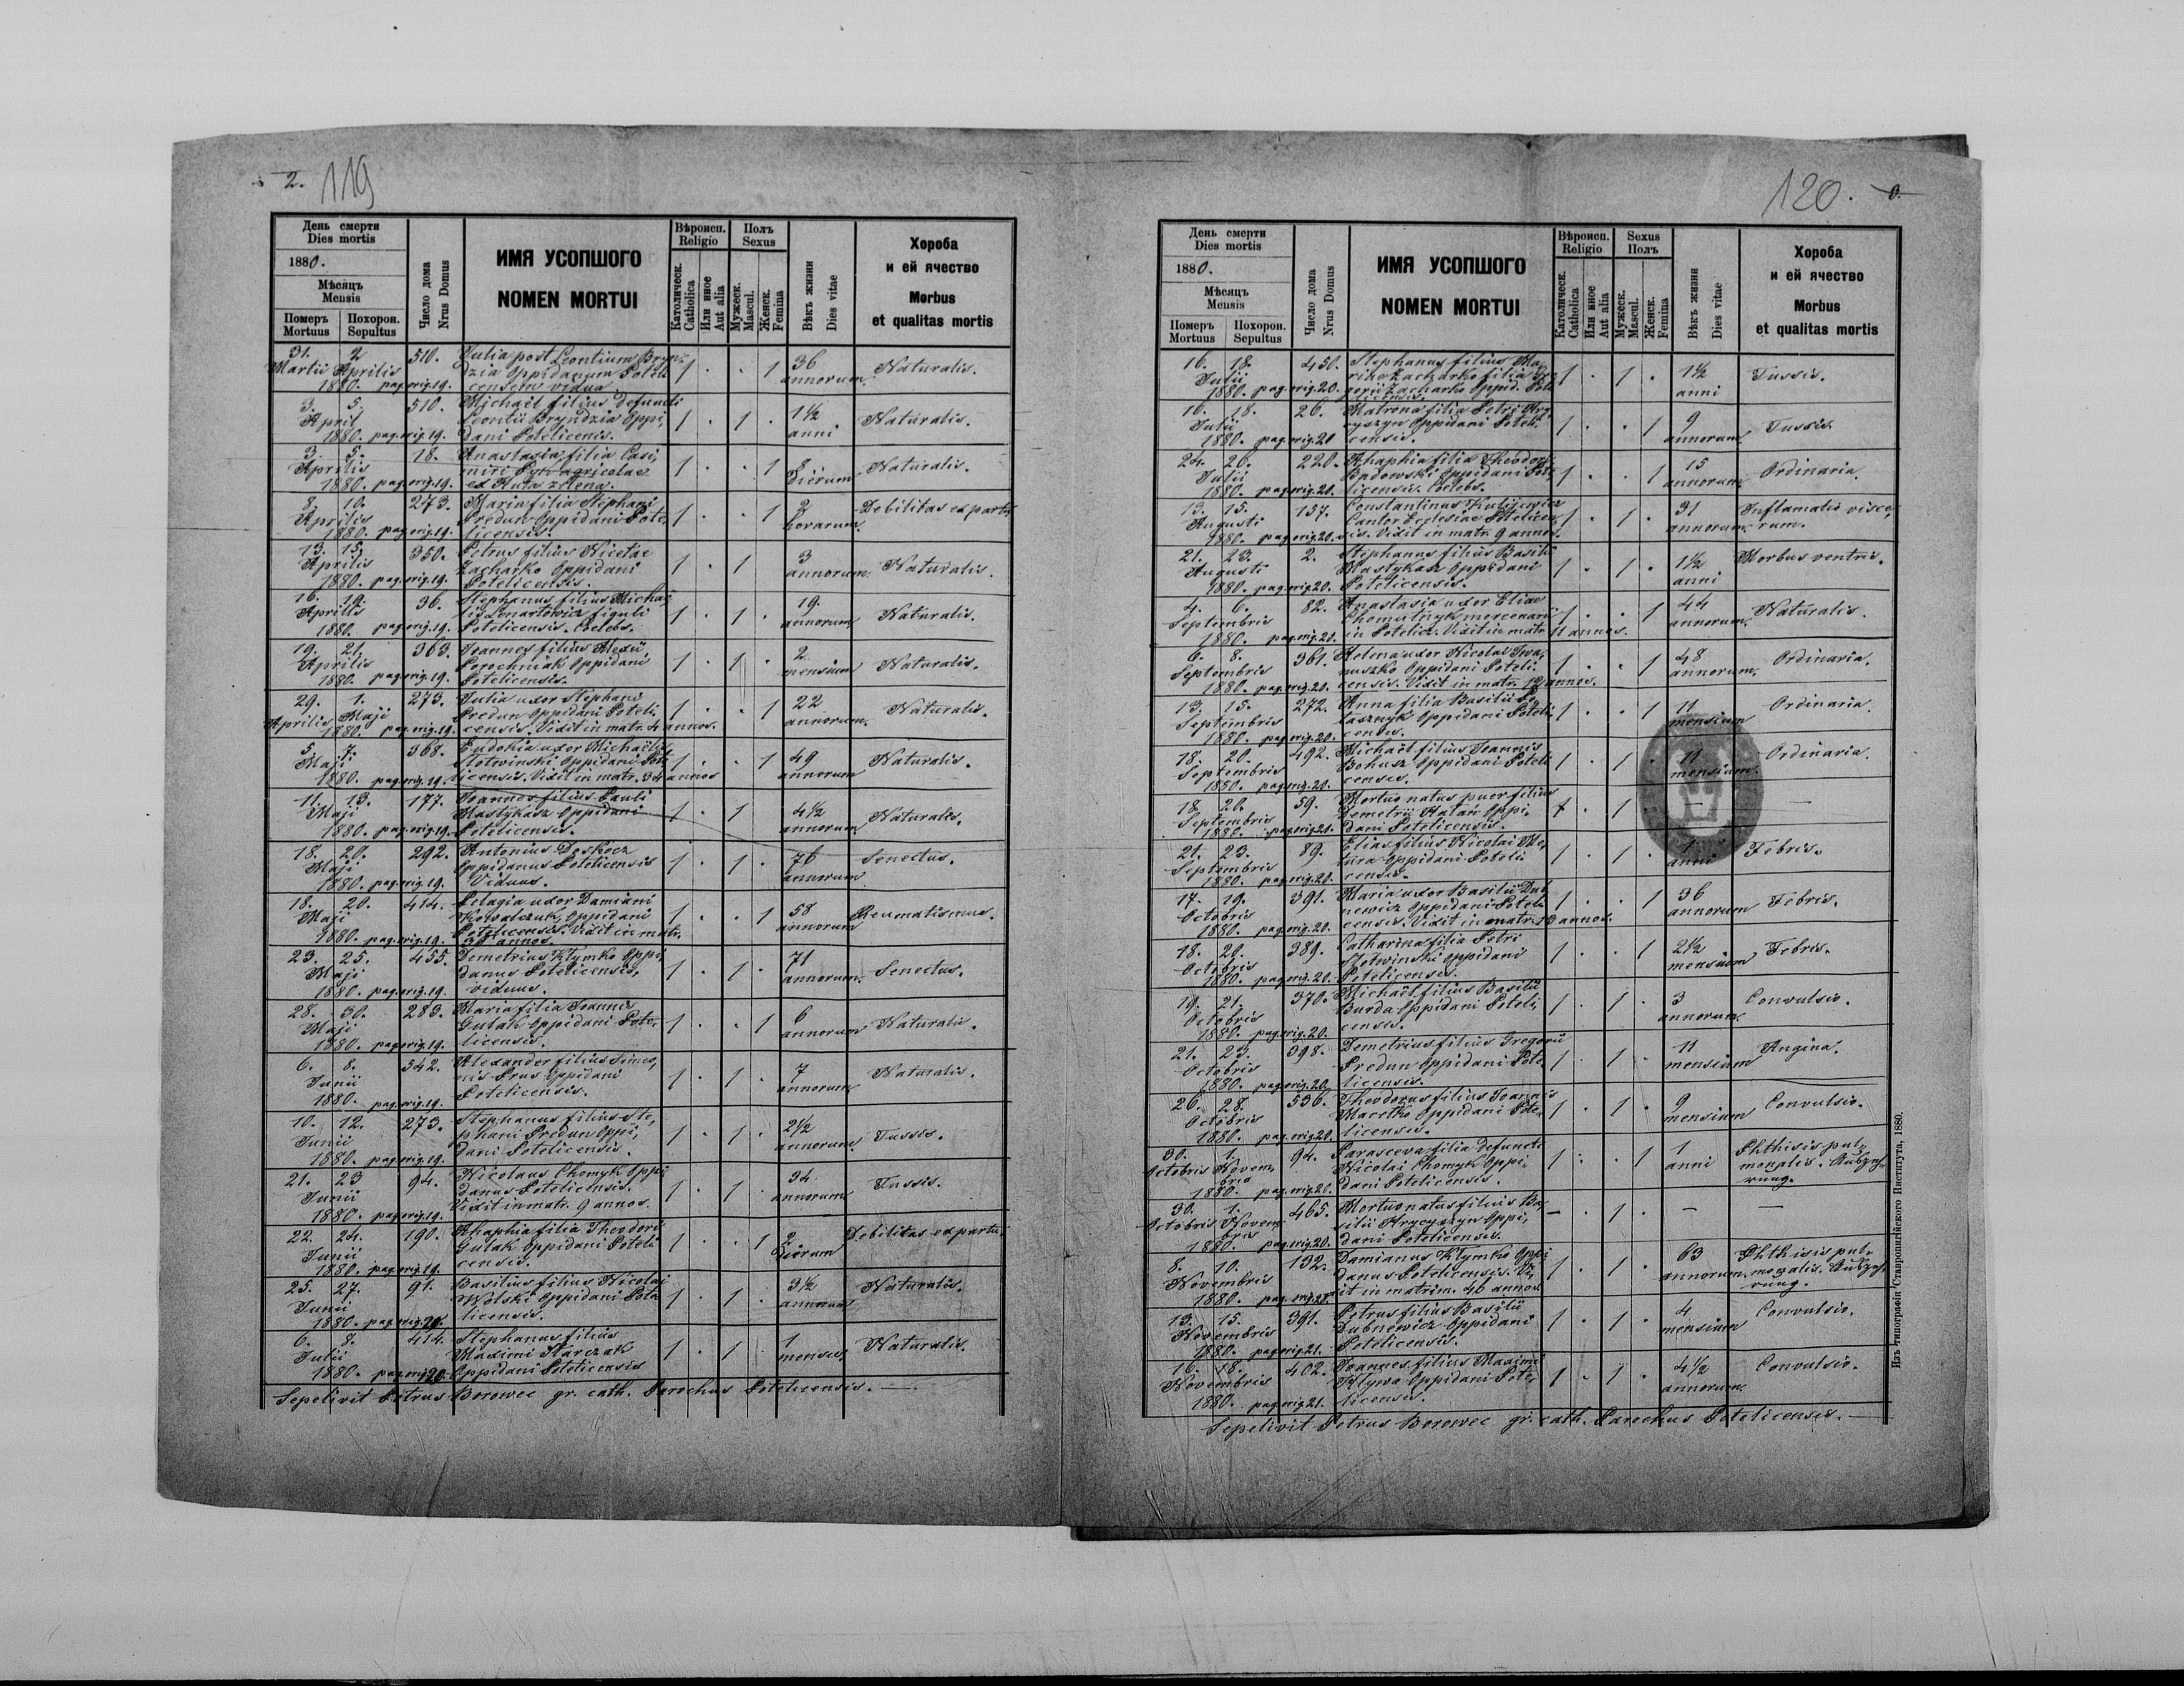 2. 119
День смерти
Dies mortis
1880.
Мѣсяць
Mensis
Померъ Mortuus
Похорон. Sepultus
Число дома
Nrus Domus
ИМЯ УСОПШОГО
NOMEN MORTUI
Вѣроисп.
Religio
Католическ.
Catholica
Или иное
Aut alia
Полъ
Sexus
Мужеск.
Mascul.
Женск.
Femina
Вѣкъ жизни
Dies vitae
Хороба
и ей ячество
Morbus
et qualitas mortis
31. 2 510. Julia post Leontium Bryn
Martii Aprilis dzia Oppidanum Poteli 1 . . 1 36 annorum Naturalis.
1880. pag. orig. 19. censem vidua
3. 5. 510. Michaël filius defuncti
April Leontii Bryndzia Oppi, 1 . 1 . 1½ anni Naturalis.
1880. pag. orig. 19. dani Potelicensis.
3. 5. 18. Anastasia filia Casi,
Aprilis miri agricolae 1 . . 1 8 dierum Naturalis.
1880. pag. orig. 19. ex Huta zelena.
8. 10. 273. Maria filia Stephani
Aprilis Predun Oppidani Pote, 1 . . 1 2 horarum Debilitas ex partu
1880. pag. orig. 19. licensis.
13. 15. 350. Petrus filius Nicetae
Aprilis Zacharko Oppidani 1 . 1 . 3 annorum. Naturalis.
1880. pag. orig. 19. Potelicensis.
16. 19. 36. Stephanus filius Michae
Aprilis lis Lenartowicz figuli 1 . 1 . 19. annorum Naturalis.
1880. pag. orig. 19. Potelicensis. Coelebs.
19. 21. 363. Joannes filius Alexii,
Aprilis Porochniak Oppidani 1 . 1 . 2 mensium Naturalis.
1880. pag. orig. 19. Potelicensis.
29. 1. 273. Julia uxor Stephani
Aprilis Maji Predun Oppidani Poteli, 1 . . 1 22 annorum. Naturalis.
1880. pag. orig. 19. censis. Vidit in matr. 4 annos.
5. 7. 368. Eudokia uxor Michaëlis
Maji Slotwinski Oppidani Pote 1 . . 1 49 annorum Naturalis.
1880. pag. orig. 19. licensis. Vidit in matr. 34 annos
11. 13. 177. Joannes filius Pauli
Maji Mastykasz Oppidani 1 . 1 4½ annorum Naturalis.
1880. pag. orig. 19. Potelicensis.
18. 20. 292. Antonius Doskocz
Maji Oppidanus Potelicensis 1 . 1 . 76 annorum Senectus.
1880. pag. orig. 19. Viduus.
18. 20. 414. Pelagia uxor Damiani
Maji Kowalczuk, Oppidani 1 . . 1 58 annorum Reumatismus.
1880. pag. orig. 19. Potelicensis. Vidit in matr. annos.
23. 25. 455. Demetrius Klymko Oppi,
Maji danus Potelicensis, 1 . 1 . 71 annorum. Senectus.
1880. pag. orig. 19. viduus.
28. 30. 283. Maria filia Joannis
Maji Gulak Oppidani Pote, 1 . . 1 6 annorum Naturalis.
1880. pag. orig. 19. licensis.
6. 8. 342. Alexander filius Simeo,
Junii nis Prus Oppidani 1 . 1 . 7 annorum Naturalis.
1880. pag. orig. 19. Potelicensis.
10. 12. 273. Stephanus filius Ste,
Junii phani Predun Oppi, 1 . 1 . 2½ annorum. Tussis.
1880. pag. orig. 19. dani Potelicensis.
21. 23 94. Nicolaus Chomyk Oppi
Junii danus Potelicensis. 1 . 1 . 34 annorum Tussis.
1880. pag. orig. 19. Vidit in matr. 9 annos.
22. 24. 190. Rhaphia filia Theodori
Junii Gulak Oppidani Poteli 1 . . 1 2 dierum Debilitas ex partu
1880. pag. orig. 19. censis.
25. 27. 91. Basilius filius Nicolai
Junii Wolski Oppidani Pote 1 . 1 . 3½ annorum Naturalis.
1880. pag. orig. 20. licensis.
6. 8. 414. Stephanus filius
Julii Maximi Starczak 1 . 1 1 mensis. Naturalis.
1880. pag. orig. 20. Oppidani Potelicensis
Sepelivit Petrus Borowec gr. cath. Parochus Potelicensis.
120.
День смерти
Dies mortis
1880.
Мѣсяць
Mensis
Померъ Mortuus
Похорон. Sepultus
Число дома
Nrus Domus
ИМЯ УСОПШОГО
NOMEN MORTUI
Вѣроисп.
Religio
Католическ.
Catholica
Или иное
Aut alia
Sexus
Полъ
Мужеск.
Mascul.
Женск.
Femina
Вѣкъ жизни
Dies vitae
Хороба
и ей ячество
Morbus
et qualitas mortis
16. 18. 450. Stephanus filius Ma,
Julii riae Zacharko filia Gre 1 . 1 . 1½ anni Tussis.
1880. pag. orig. 20. gorii Zacharko Oppid. Pote licensis.
16. 18. 26. Matrona filia Petri Hry
Julii cyszyn Oppidani Poteli 1 . . 1 9 annorum Tussis.
1880. pag. orig. 20 censis.
24. 26. 220. Rhaphia filia Theodori
Julii Badowski Oppidani Pote 1 . . 1 15 annorum Ordinaria.
1880. pag. orig. 20. licensis. Coelebs.
13. 15. 157. Constantinus
Augusti Cantor Ecclesiae Potelicen 1 . 1 . 31 annorum Inflamatio visce,
1880. pag. orig. 20. sis. Vidit in matr. 9 annos. rum.
21. 23. 2. Stephanus filius Basilii
Augusti Mastykasz Oppidani 1 . 1 . 1½ anni Morbus ventris.
1880. pag. orig. 20. Potelicensis.
4. 6. 82. Anastasia uxor Eliae
Septembris mercenarii 1 . . 1 44 annorum. Naturalis.
1880. pag. orig. 20. in Potelicz. Vidit in matr. 11 annos.
6. 8. 361. Helena uxor Nicolai Iwa,
Septembris nuszko Oppidani Poteli 1 . . 1 48 annorum. Ordinaria.
1880. pag. orig. 20. censis. Vidit in matr. 12 annos.
13. 15. 272. Anna filia Basilii
Septembris Oppidani Poteli 1 . . 1 11 mensium Ordinaria.
1880. pag. orig. 20. censis.
18. 20. 492. Michaël filius Joannis
Septembris Bohusz Oppidani Poteli 1 . 1 . 11 mensium. Ordinaria.
1880. pag. orig. 20. censis.
18. 20. 59. Mortuo natus puer filius
Septembris Demetrii Hatan Oppi, 1 — —
1880. pag. orig. 20. dani Potelicensis.
21. 23. 89. Elias filius Nicolai
Septembris Oppidani Poteli 1 . 1 . 1 anni Febris.
1880. pag. orig. 20. censis.
17. 19. 391. Maria uxor Basilii Dub
Octobris newicz Oppidani Poteli 1 . . 1 36 annorum Febris.
1880. pag. orig. 20. censis. Vidit in matr. 13 annos.
18. 20. 389. Catharina filia Petri
Octobris Slotwinski Oppidani 1 . . 1 2½ mensium Febris.
1880. pag. orig. 20. Potelicensis.
19. 21. 370. Michaël filius Basilii
Octobris Burda Oppidani Poteli, 1 . 1 . 3 annorum. Convulsio.
1880. pag. orig. 20. censis.
21. 23. 398. Demetrius filius Gregorii
Octobris Predun Oppidani Pote 1 . 1 . 11 mensium Angina.
1880. pag. orig. 20. licensis.
26. 28. 536. Theodorus filius Joannis
Octobris Macelko Oppidani Pote, 1 . 1 . 9 mensium Convulsio.
1880. pag. orig. 20. licensis.
30. 1. 94. Parasceva filia defuncti
Octobris Novem bris Nicolai Chomyk Oppi, 1 . . 1 1 anni Phthisis pul, monalis. Auszeh rung.
1880. pag. orig. 20. dani Potelicensis.
30. 1. 465. Mortuo natus filius Ba,
Octobris Novem bris silii Hrycyszyn Oppi, — . 1 . — —
1880. pag. orig. 20. dani Potelicensis.
8. 10. 132. Damianus Klymko Oppi
Novembris danus Potelicensis. Vi, 1 . 1 . 63 annorum. Phthisis pul, monalis. Auszeh rung.
1880. pag. orig. 21. dit in matrim. 40 annos
13. 15. 391. Petrus filius Basilii
Novembris Dubnewicz Oppidani 1 . 1 . 4 mensium Convulsio.
1880. pag. orig. 21. Potelicensis.
16. 18. 402. Joannes filius Maximi
Novembris Klywa Oppidani Pote, 1 . 1 . 4½ annorum. Convulsio.
1880. pag. orig. 21. licensis.
Sepelivit Petrus Borowec gr. cath. Parochus Potelicensis.
Изъ типографіи Ставропигійского Института, 1880.